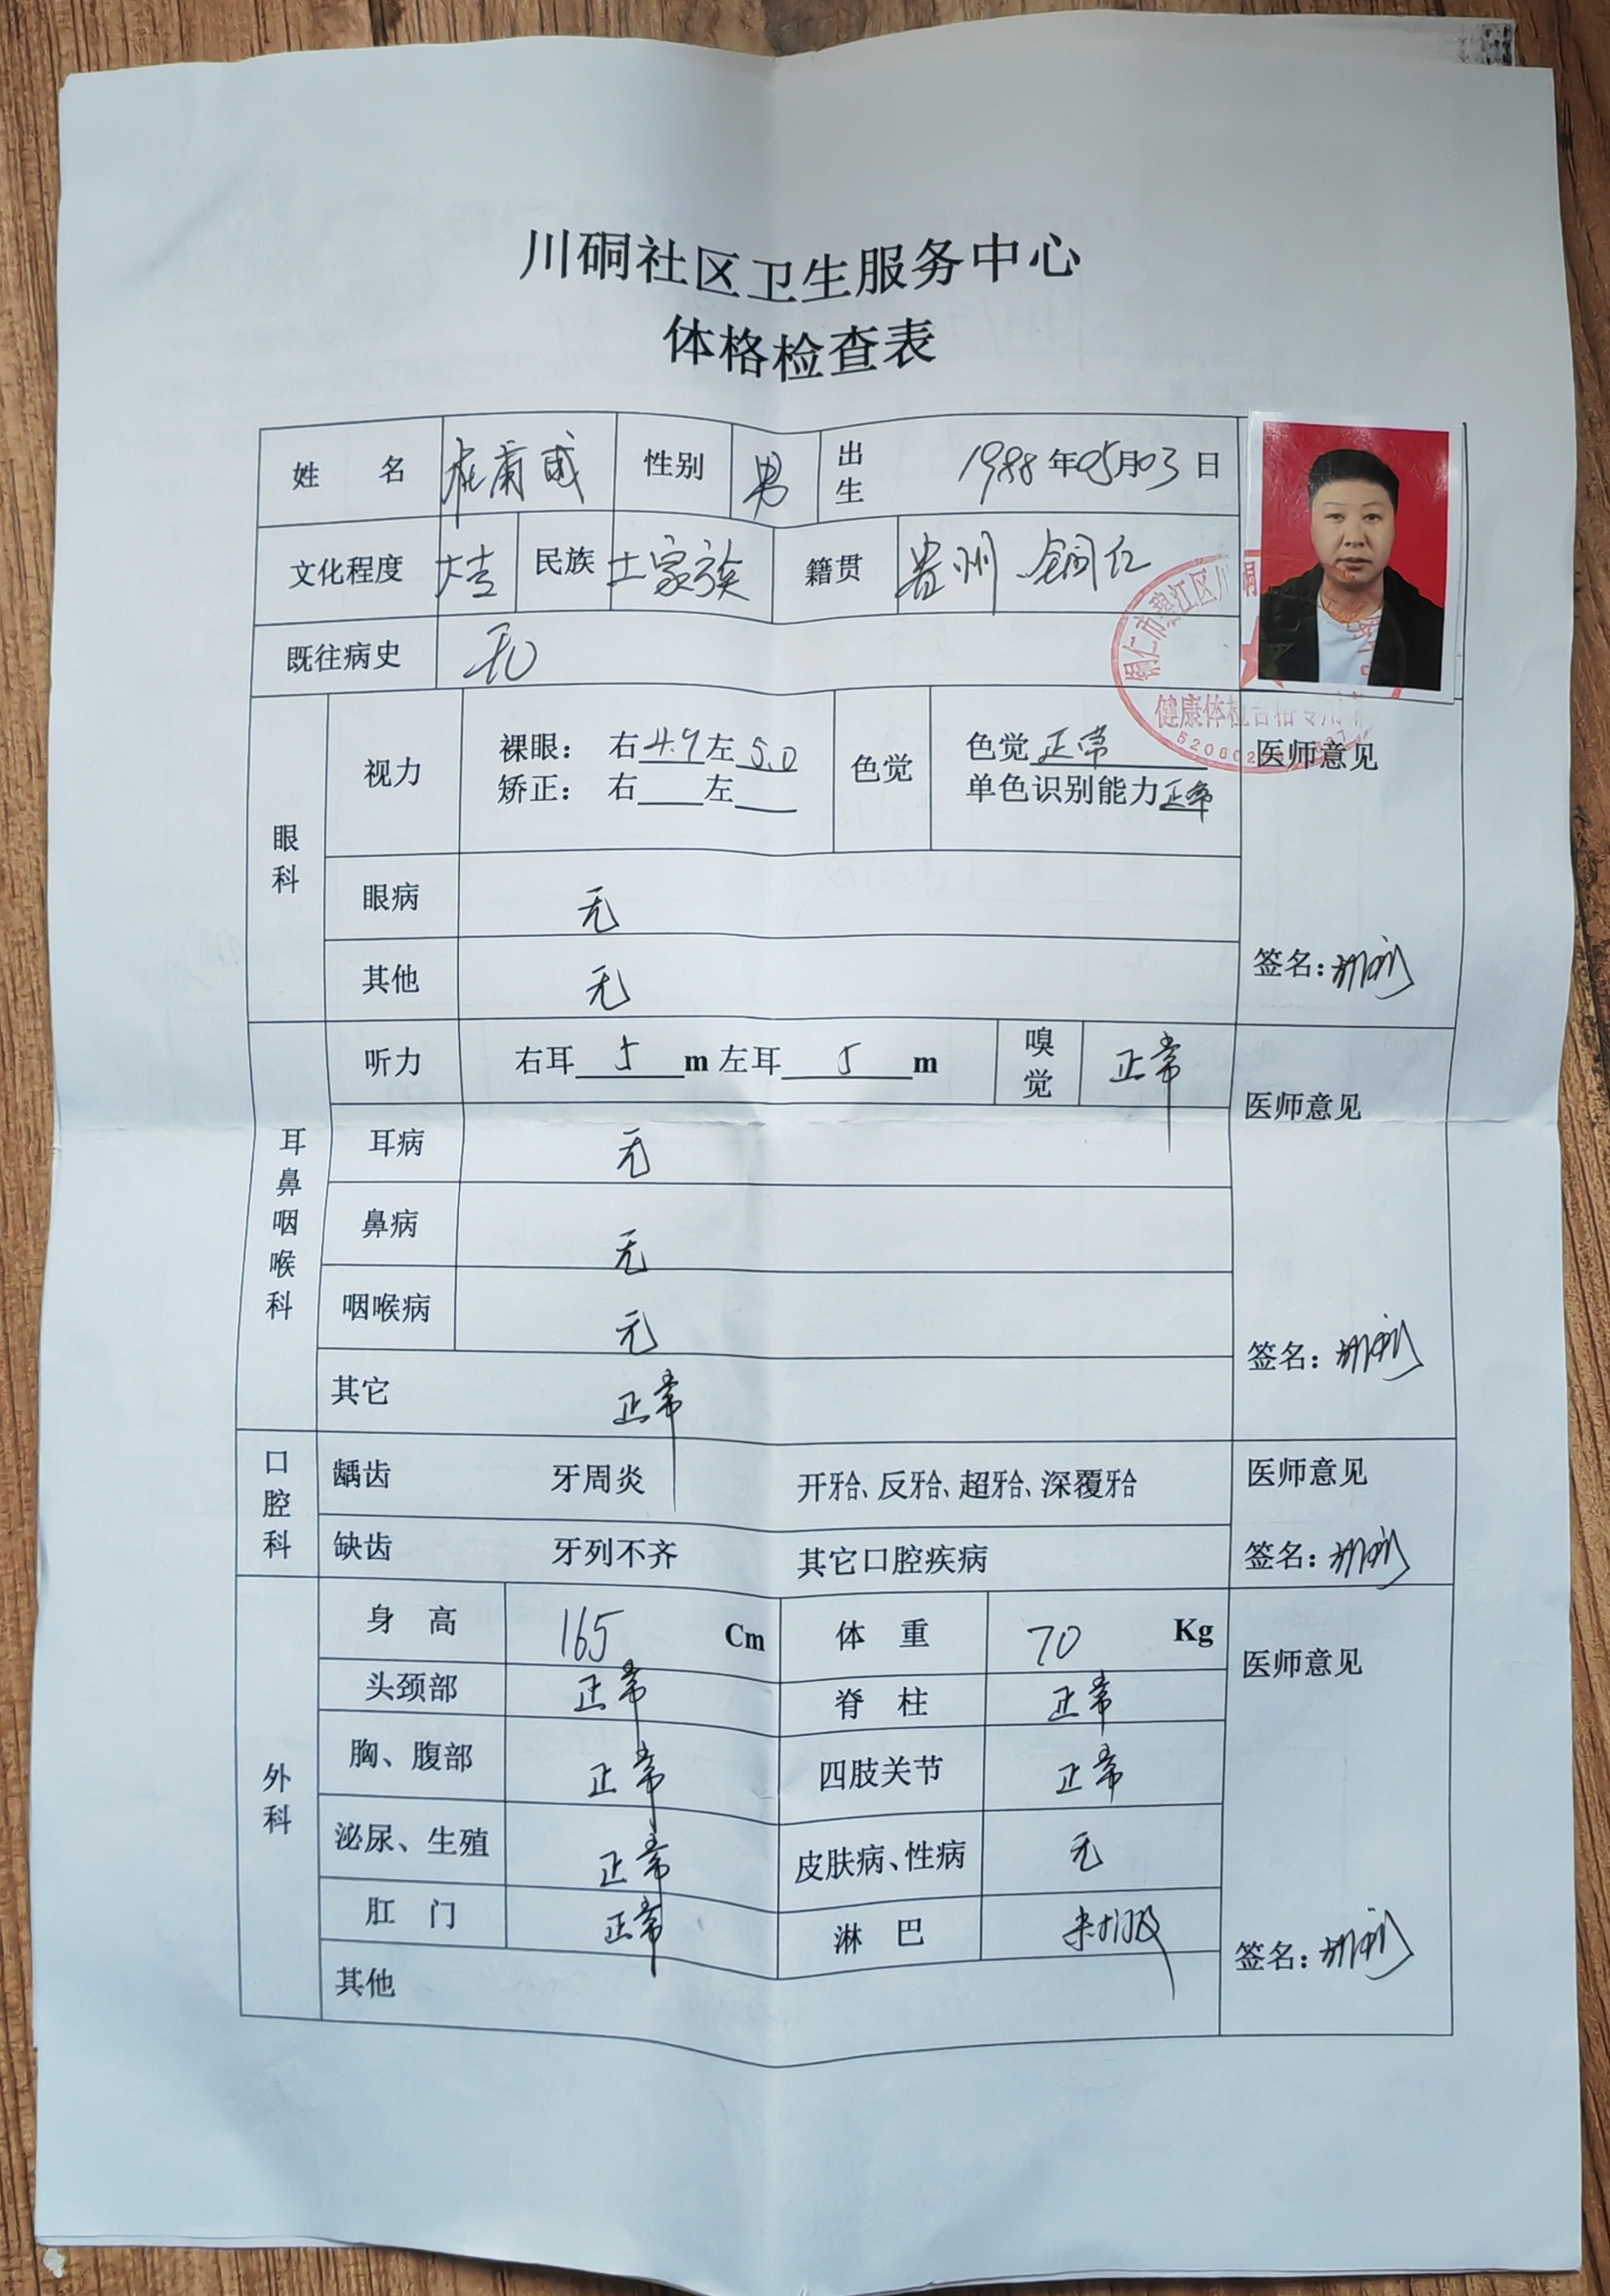 川硐社区卫生服务中心
体格检查表
姓 名 性别 男 出生 1988年05月03日
文化程度 大专 民族 土家族 籍贯 贵州 铜仁
既往病史 无
铜仁市碧江区川硐
健康体检合格专用章
眼科 视力 裸眼: 右4.9左5.0 色觉 色觉正常 医师意见
矫正: 右____左____ 单色识别能力正常
眼病 无
其他 无 签名:
耳鼻咽喉科 听力 右耳5m 左耳5m 嗅觉 正常 医师意见
耳病 无
鼻病 无
咽喉病 无 签名:
其它 正常
口腔科 龋齿 牙周炎 开𬌗、反𬌗、超𬌗、深覆𬌗 医师意见
缺齿 牙列不齐 其它口腔疾病 签名:
外科 身 高 165 Cm 体 重 70 Kg 医师意见
头颈部 正常 脊 柱 正常
胸、腹部 正常 四肢关节 正常
泌尿、生殖 正常 皮肤病、性病 无
肛 门 正常 淋 巴 未扪及 签名:
其他